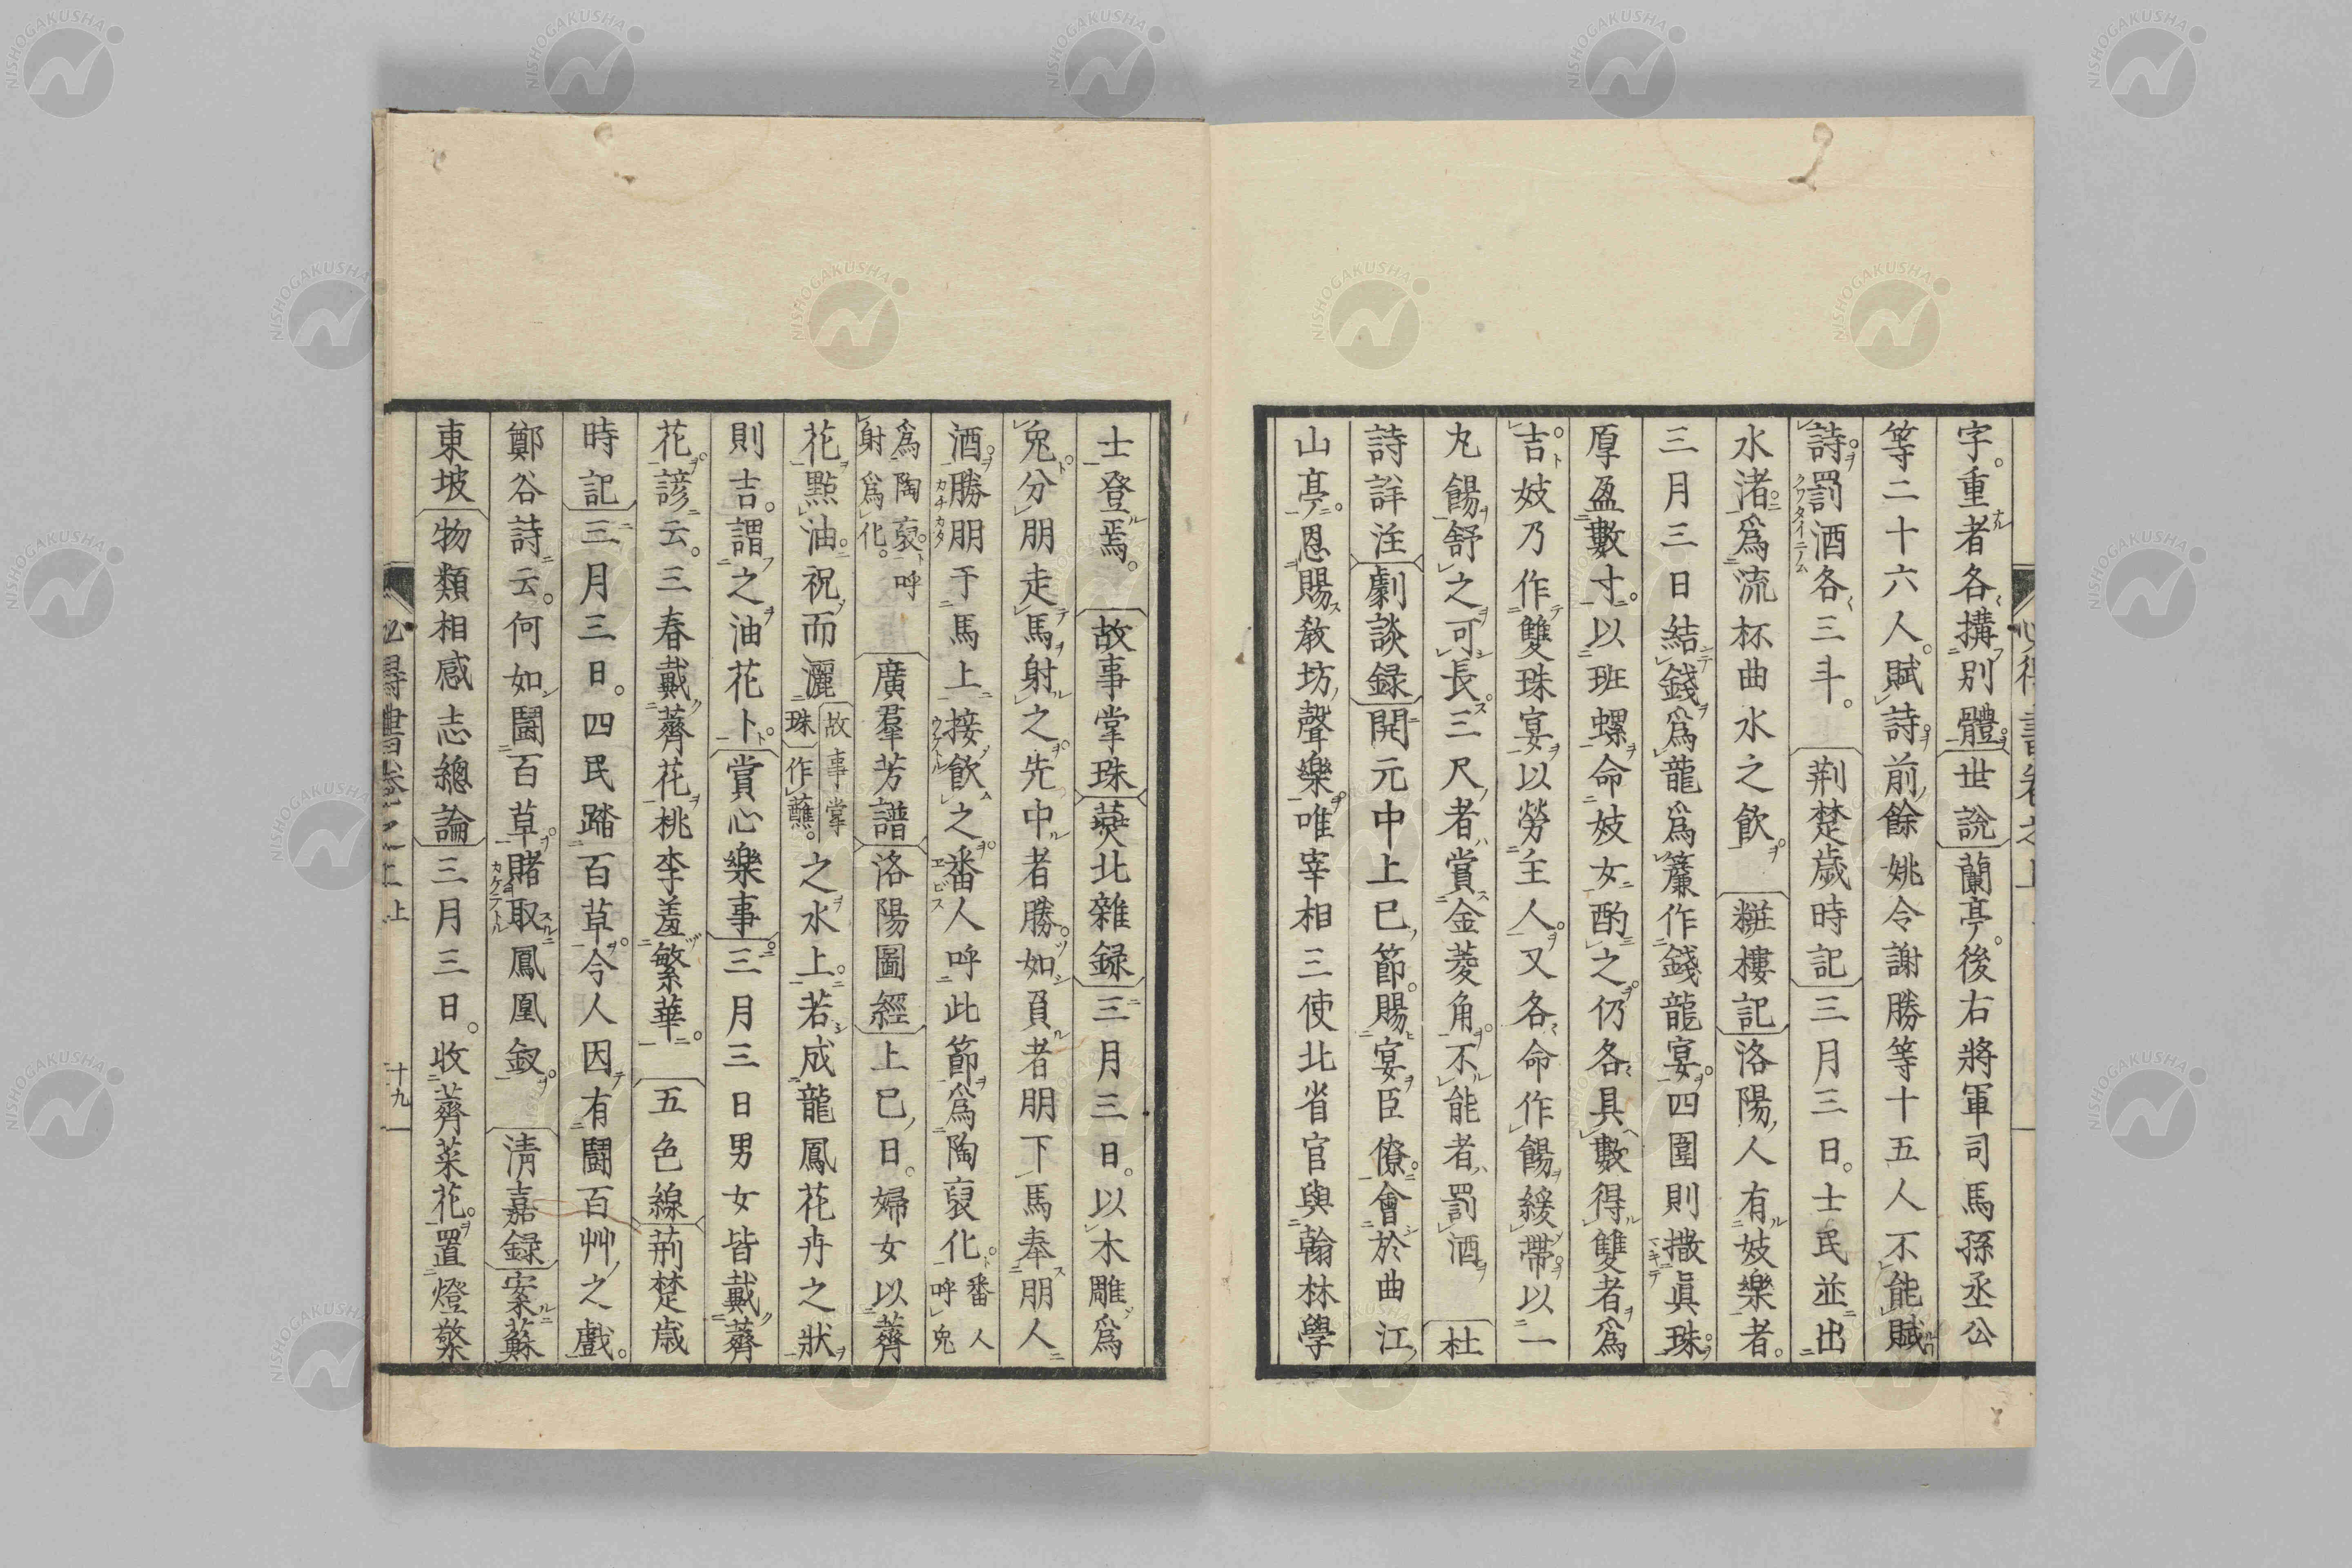 字重者各搆別體世說蘭亭後右將軍司馬孫丞公
等二十六人賦詩前餘姚令謝勝等十五人不能賦
詩罰酒各三斗荊楚歲時記三月三日士民並出
水渚爲流杯曲水之飲粧樓記洛陽人有妓樂者
三月三日結錢爲龍爲簾作錢龍宴四圍則撒眞珠
厚盈數寸以班螺命妓女酌之仍各具數得雙者爲
吉妓乃作雙珠宴以勞主人又各命作餳緩帶以一
丸餳舒之可長三尺者賞金菱角不能者罰酒 杜
詩詳注劇談録開元中上巳節賜宴臣僚會於曲江
山亭恩賜敎坊聲樂唯宰相三使北省官與翰林學
士登焉 故事掌珠葖北雜録三月三日以木雕爲
兔分朋走馬射之先中者勝如負者朋下馬奉朋人
酒勝朋于馬上接飲之番人呼此節爲陶裒化番人呼兔
爲陶裒呼射爲化 廣羣芳譜洛陽圖經上巳日婦女以薺
花點油祝而灑故事掌珠作蘸之水上若成龍鳳花卉之狀
則吉謂之油花卜賞心樂事三月三日男女皆戴薺
花諺云三春戴薺花桃李羞繁華 五色線荊楚歲
時記三月三日四民踏百草今人因有鬪百艸之戲
鄭谷詩云何如鬪百草賭取鳳凰釵 淸嘉録案蘇
東坡物類相感志總論三月三日收薺菜花置燈檠
十九
NISHOGAKUSHA